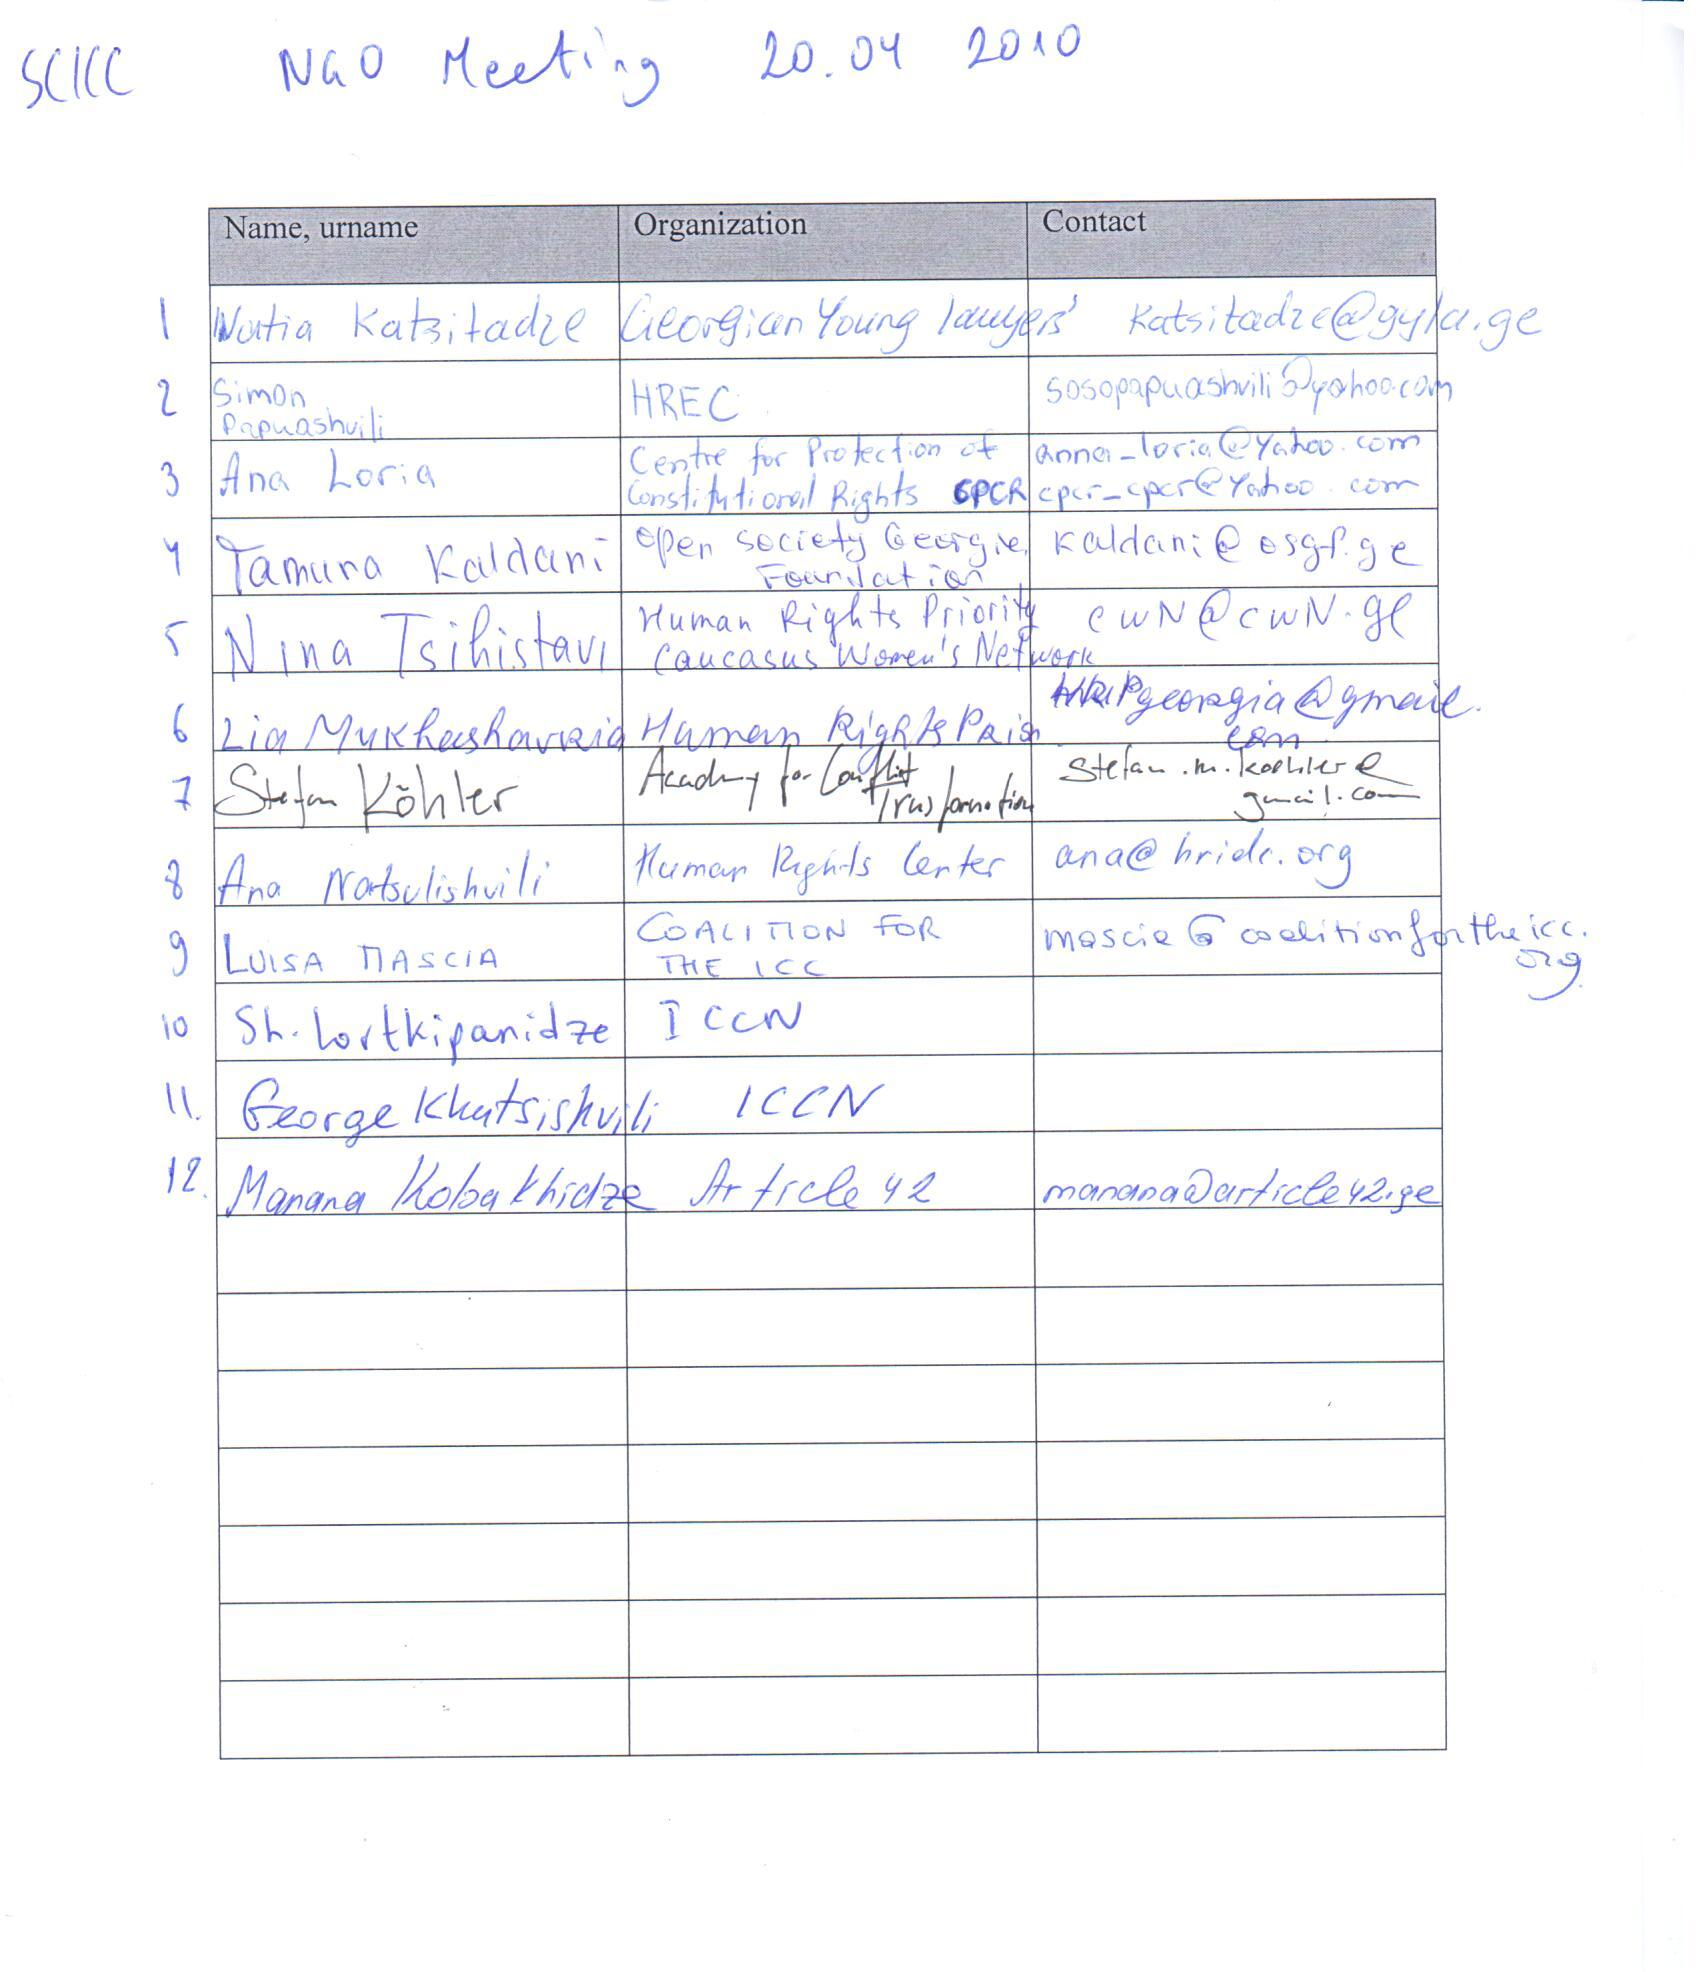 SCICC NGO Meeting 20.04 2010
Name, urname Organization Contact
1 Natia Katsitadze Georgian Young lawyers' katsitadze@gyla.ge
2 Simon Papuashvili HREC sosopapuashvili@yahoo.com
3 Ana Loria Centre for Protection of Constitutional Rights CPCR anna_loria@Yahoo.com cpcr_cpcr@Yahoo.com
4 Tamuna Kaldani Open Society Georgia Foundation kaldani@osgf.ge
5 Nina Tsihistavi Human Rights Priority Caucasus Women's Network cwN@cwN.ge
6 Lia Mukhashavria Human Rights Prior georgia@gmail.com
7 Stefan Köhler Academy for Conflict Trasformation Stefan.m.koehler@gmail.com
8 Ana Natsvlishvili Human Rights Center ana@hridc.org
9 LUISA MASCIA COALITION FOR THE ICC mascia@coalitionfortheicc.org
10 Sh. Lortkipanidze ICCN
11. George Khutsishvili ICCN
12. Manana Kobakhidze Article 42 manana@article42.ge